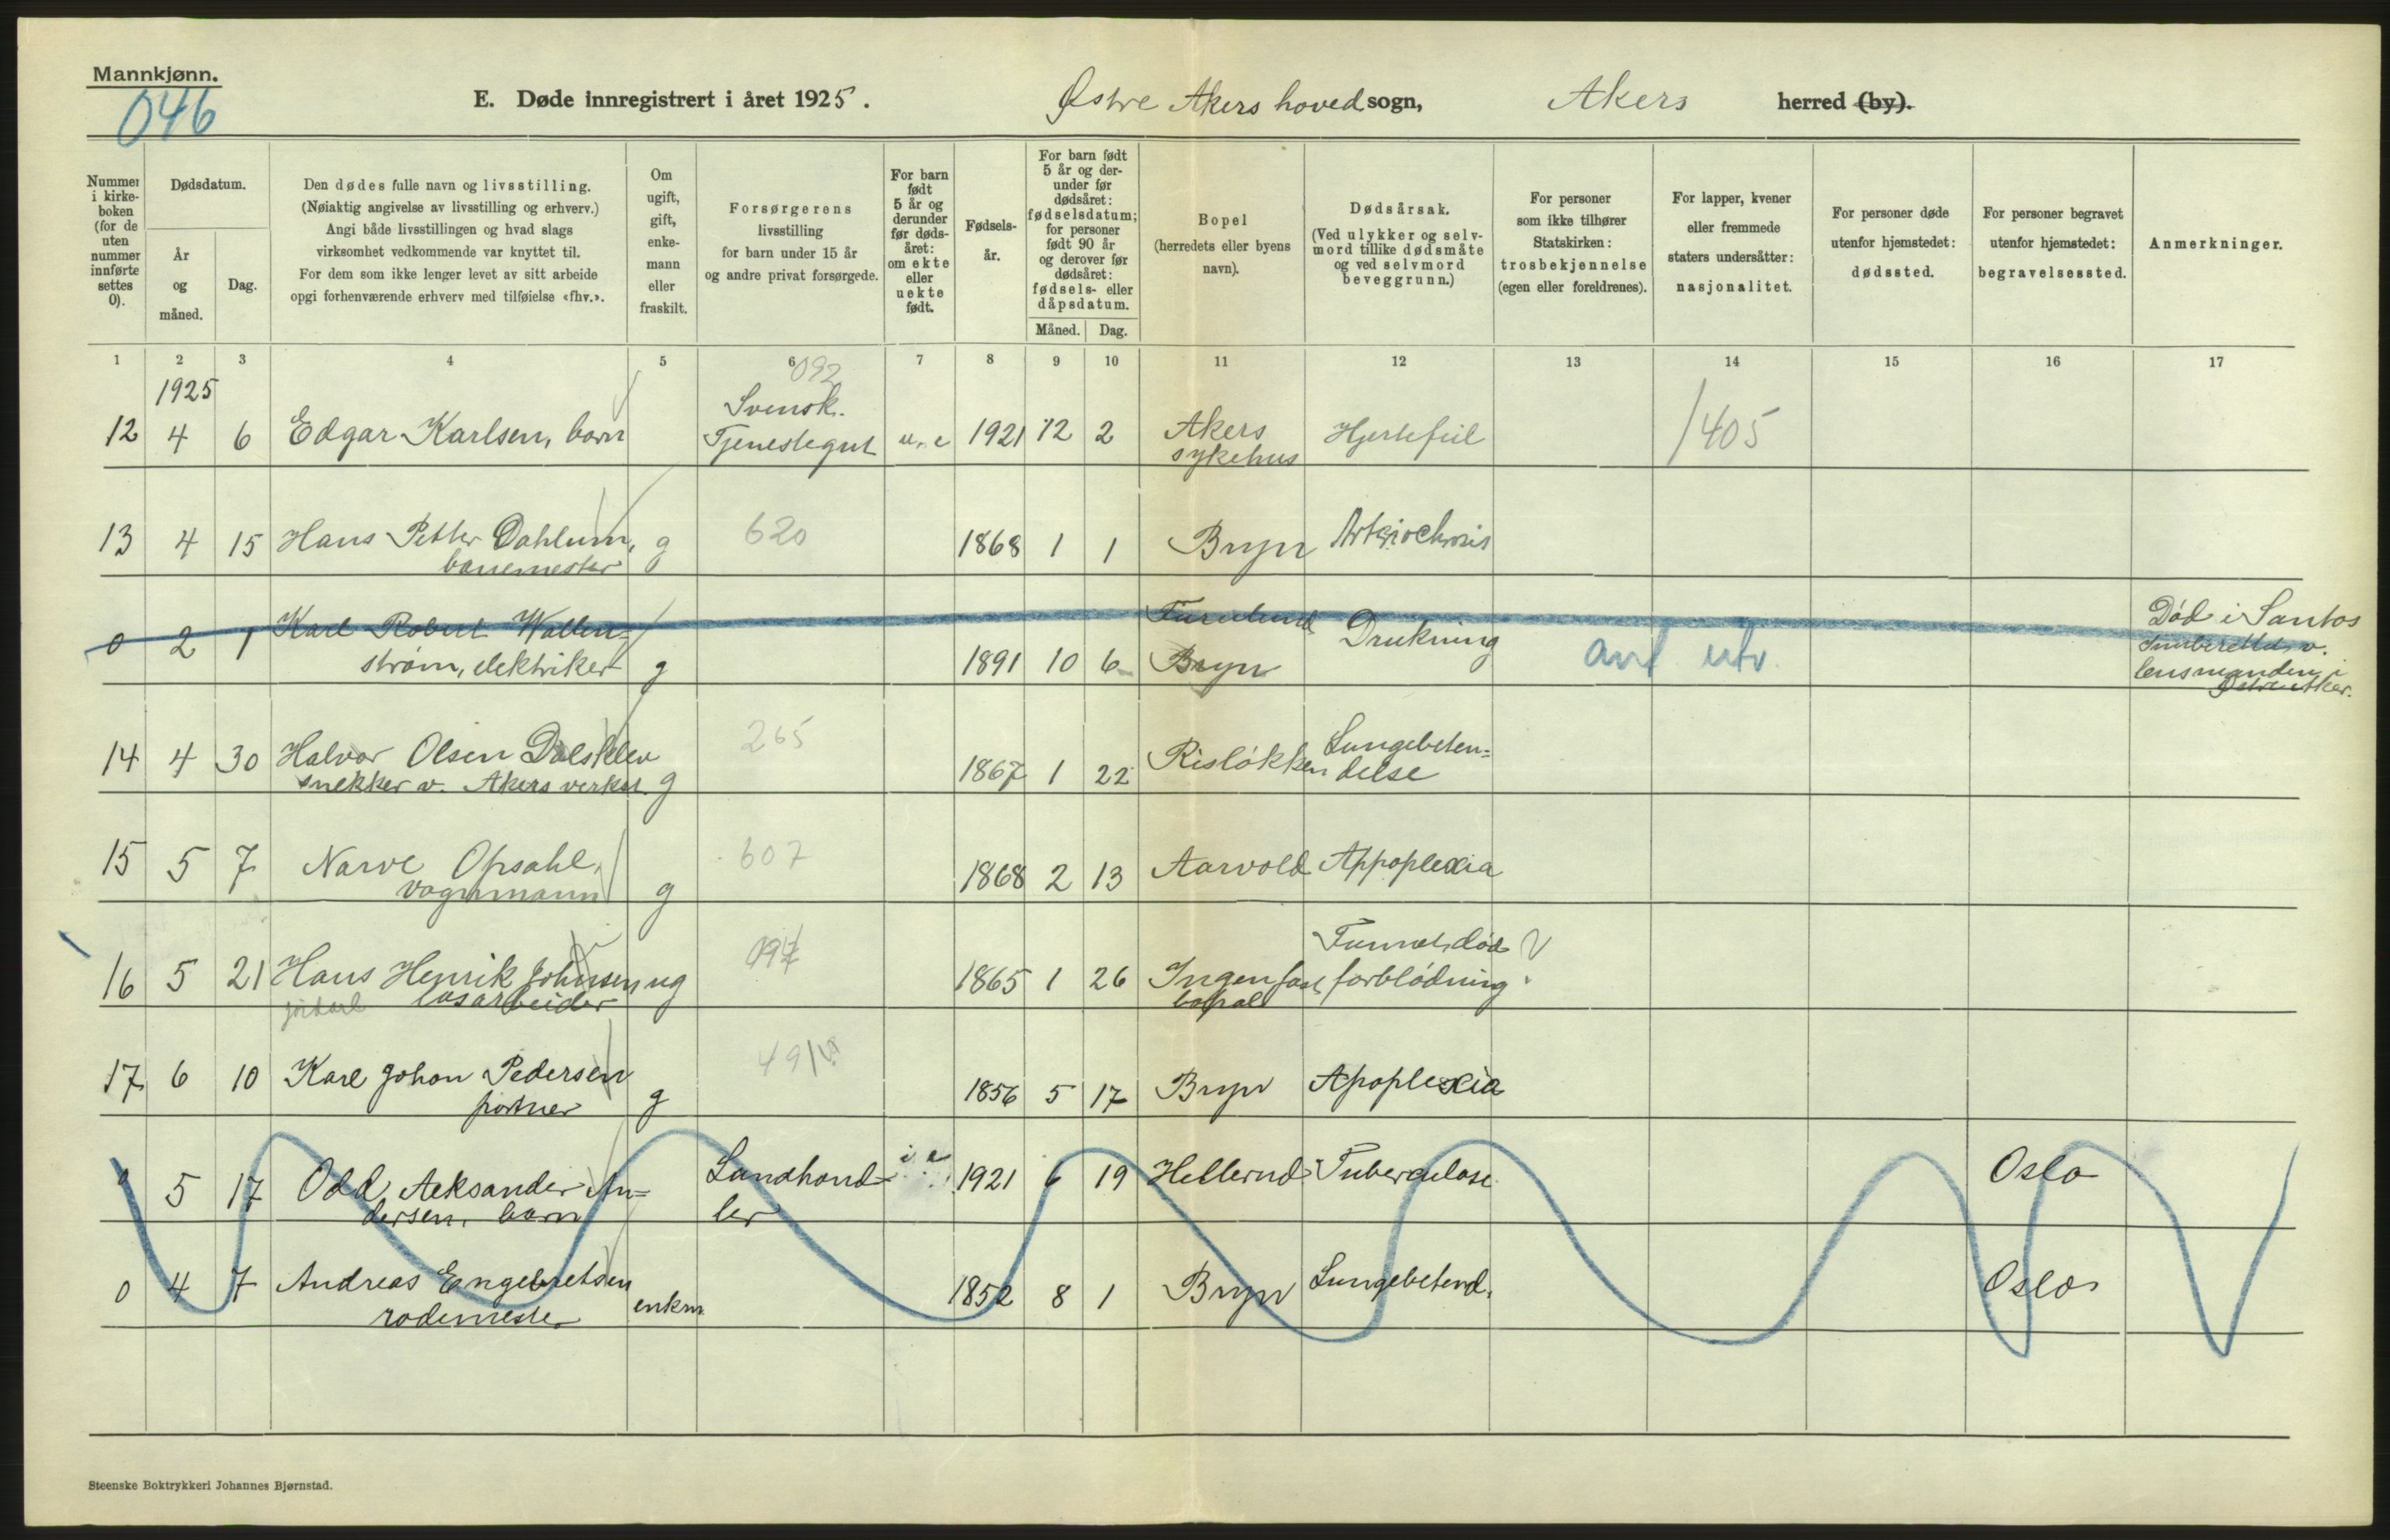 Mannkjønn.
046
E. Døde innregistrert i året 1925.
Østre Akers hoved sogn,
Akers
herred (by).
Nummer i kirke-boken (for de uten nummer innførte settes 0).
Dødsdatum.
År og måned.
Dag.
Den dødes fulle navn og livsstilling.
(Nøiaktig angivelse av livsstilling og erhverv.)
Angi både livsstillingen og hvad slags
virksomhet vedkommende var knyttet til.
For dem som ikke lenger levet av sitt arbeide
opgi forhenværende erhverv med tilføielse «fhv.».
Om ugift, gift, enke-mann eller fraskilt.
Forsørgerens
livsstilling
for barn under 15 år
og andre privat forsørgede.
For barn født 5 år og derunder før døds-året: om ekte eller uekte født.
Fødsels-år.
For barn født 5 år og der-under før dødsåret: fødselsdatum; for personer født 90 år og derover før dødsåret: fødsels- eller dåpsdatum.
Måned.
Dag.
Bopel
(herredets eller byens
navn).
Dødsårsak.
(Ved ulykker og selv-
mord tillike dødsmåte
og ved selvmord
beveggrunn.)
For personer
som ikke tilhører
Statskirken:
trosbekjennelse
(egen eller foreldrenes).
For lapper, kvener
eller fremmede
staters undersåtter:
nasjonalitet.
For personer døde
utenfor hjemstedet:
dødssted.
For personer begravet
utenfor hjemstedet:
begravelsessted.
Anmerkninger.
1 2 3 4 5 6 7 8 9 10 11 12 13 14 15 16 17
1925
092
12 4 6 Edgar Karlsen, barn Svensk. Tjenestegut u. e 1921 12 2 Akers sykehus Hjertefeil 1405
13 4 15 Hans Petter Dahlum, banemester g 620 1868 1 1 Bryn
0 2 1 Karl Robert Wallen=
strøm, elektriker g 1891 10 6 Furulund Bryn Drukning utv. Død i Santos
Innberettet v.
lensmanden i
Østre Aker.
14 4 30 Halvor Olsen Dalsklev
snekker v. Akers verkst. g 265 1867 1 22 Risløkken Lungebeten=
delse
15 5 7 Narve Opsahl,
vognmann g 607 1868 2 13 Aarvold Appoplexia
16 5 21 Hans Henrik Johnsen
løsarbeider ug 097 1865 1 26 Ingen fast
bopæl død
forblødning
17 6 10 Karl Johan Pedersen
portner g 491 1856 5 17 Bryn Apoplexia
0 5 17 Odd Aeksander An=
dersen, barn Landhand=
ler e 1921 6 19 Hellerud Tuberculose Oslo
0 4 7 Andreas Engebretsen
rodemester enkm. 1852 8 1 Bryn Lungebetend. Oslo
Steenske Boktrykkeri Johannes Bjørnstad.